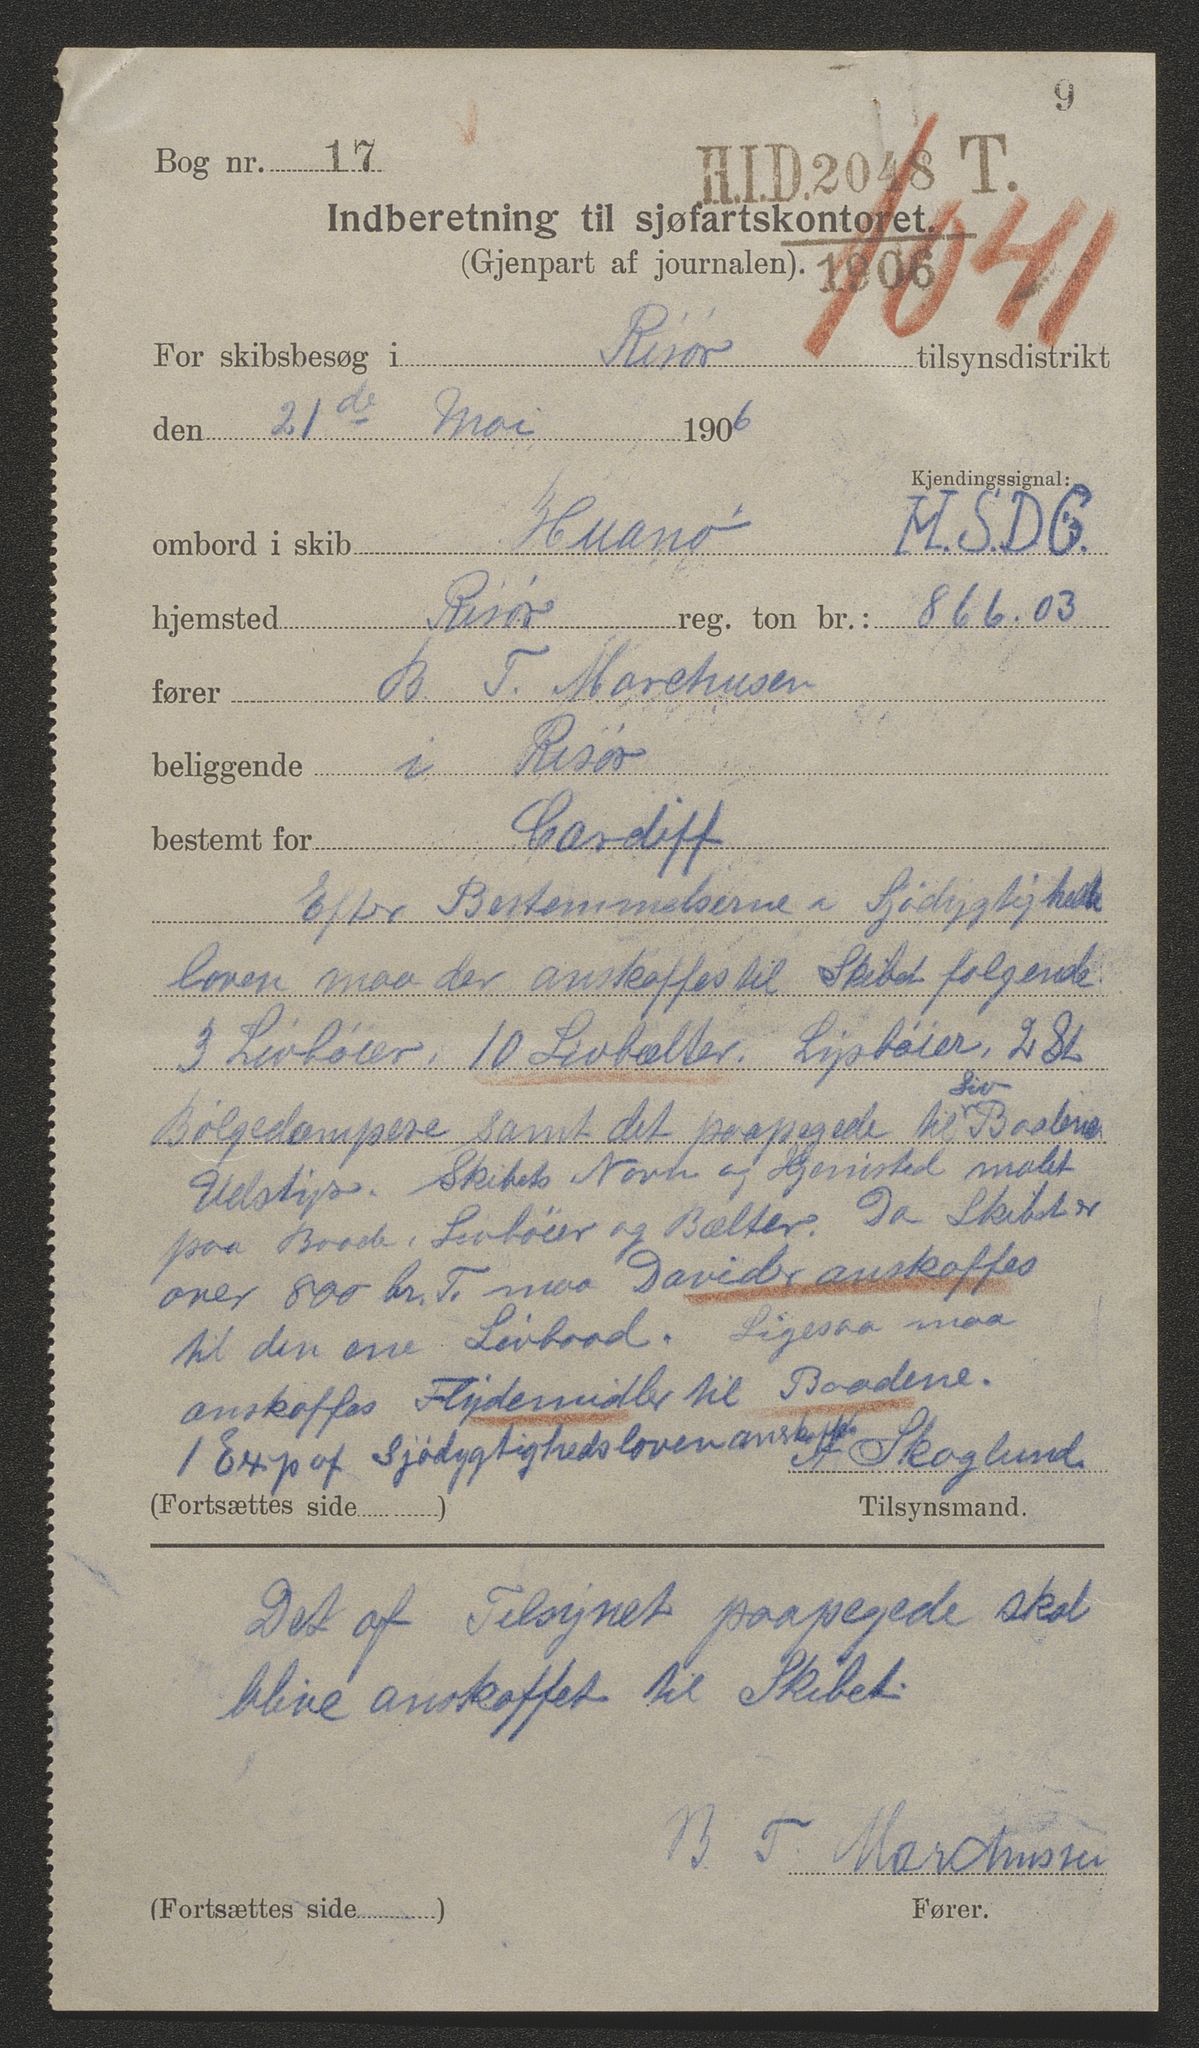 9
Bog nr. 17
H.I.D. 2048 T.
1041
Indberetning til sjøfartskontoret.
(Gjenpart af journalen).
1906
For skibsbesøg i Risør tilsynsdistrikt
den 21de Mai 1906
Kjendingssignal:
ombord i skib Huanó M.S.D.G.
hjemsted Risør reg. ton br.: 866.03
fører B. T. Marchusen
beliggende i Risør
bestemt for Cardiff
Efter Bestemmelserne i Sjödygtigheds
loven maa der anskaffes til Skibet følgende
3 Livböier, 10 Livbælter. Lysböier, 2 St
Bölgedæmpere samt det paapegede til Liv Baadens
Udstyr. Skibets Navn og Hjemsted malet
paa Baade, Livböier og Bælter. Da Skibet er
over 800 br. T. maa Davider anskaffes
til den ene Livbaad. Ligesaa maa
anskaffes Flydemidler til Baadene.
1 Exp af Sjödygtighedsloven anskaffes
Skoglund
(Fortsættes side ) Tilsynsmand.
Det af Tilsynet paapegede skal
blive anskaffet til Skibet.
B. T. Marchussen
(Fortsættes side ) Fører.